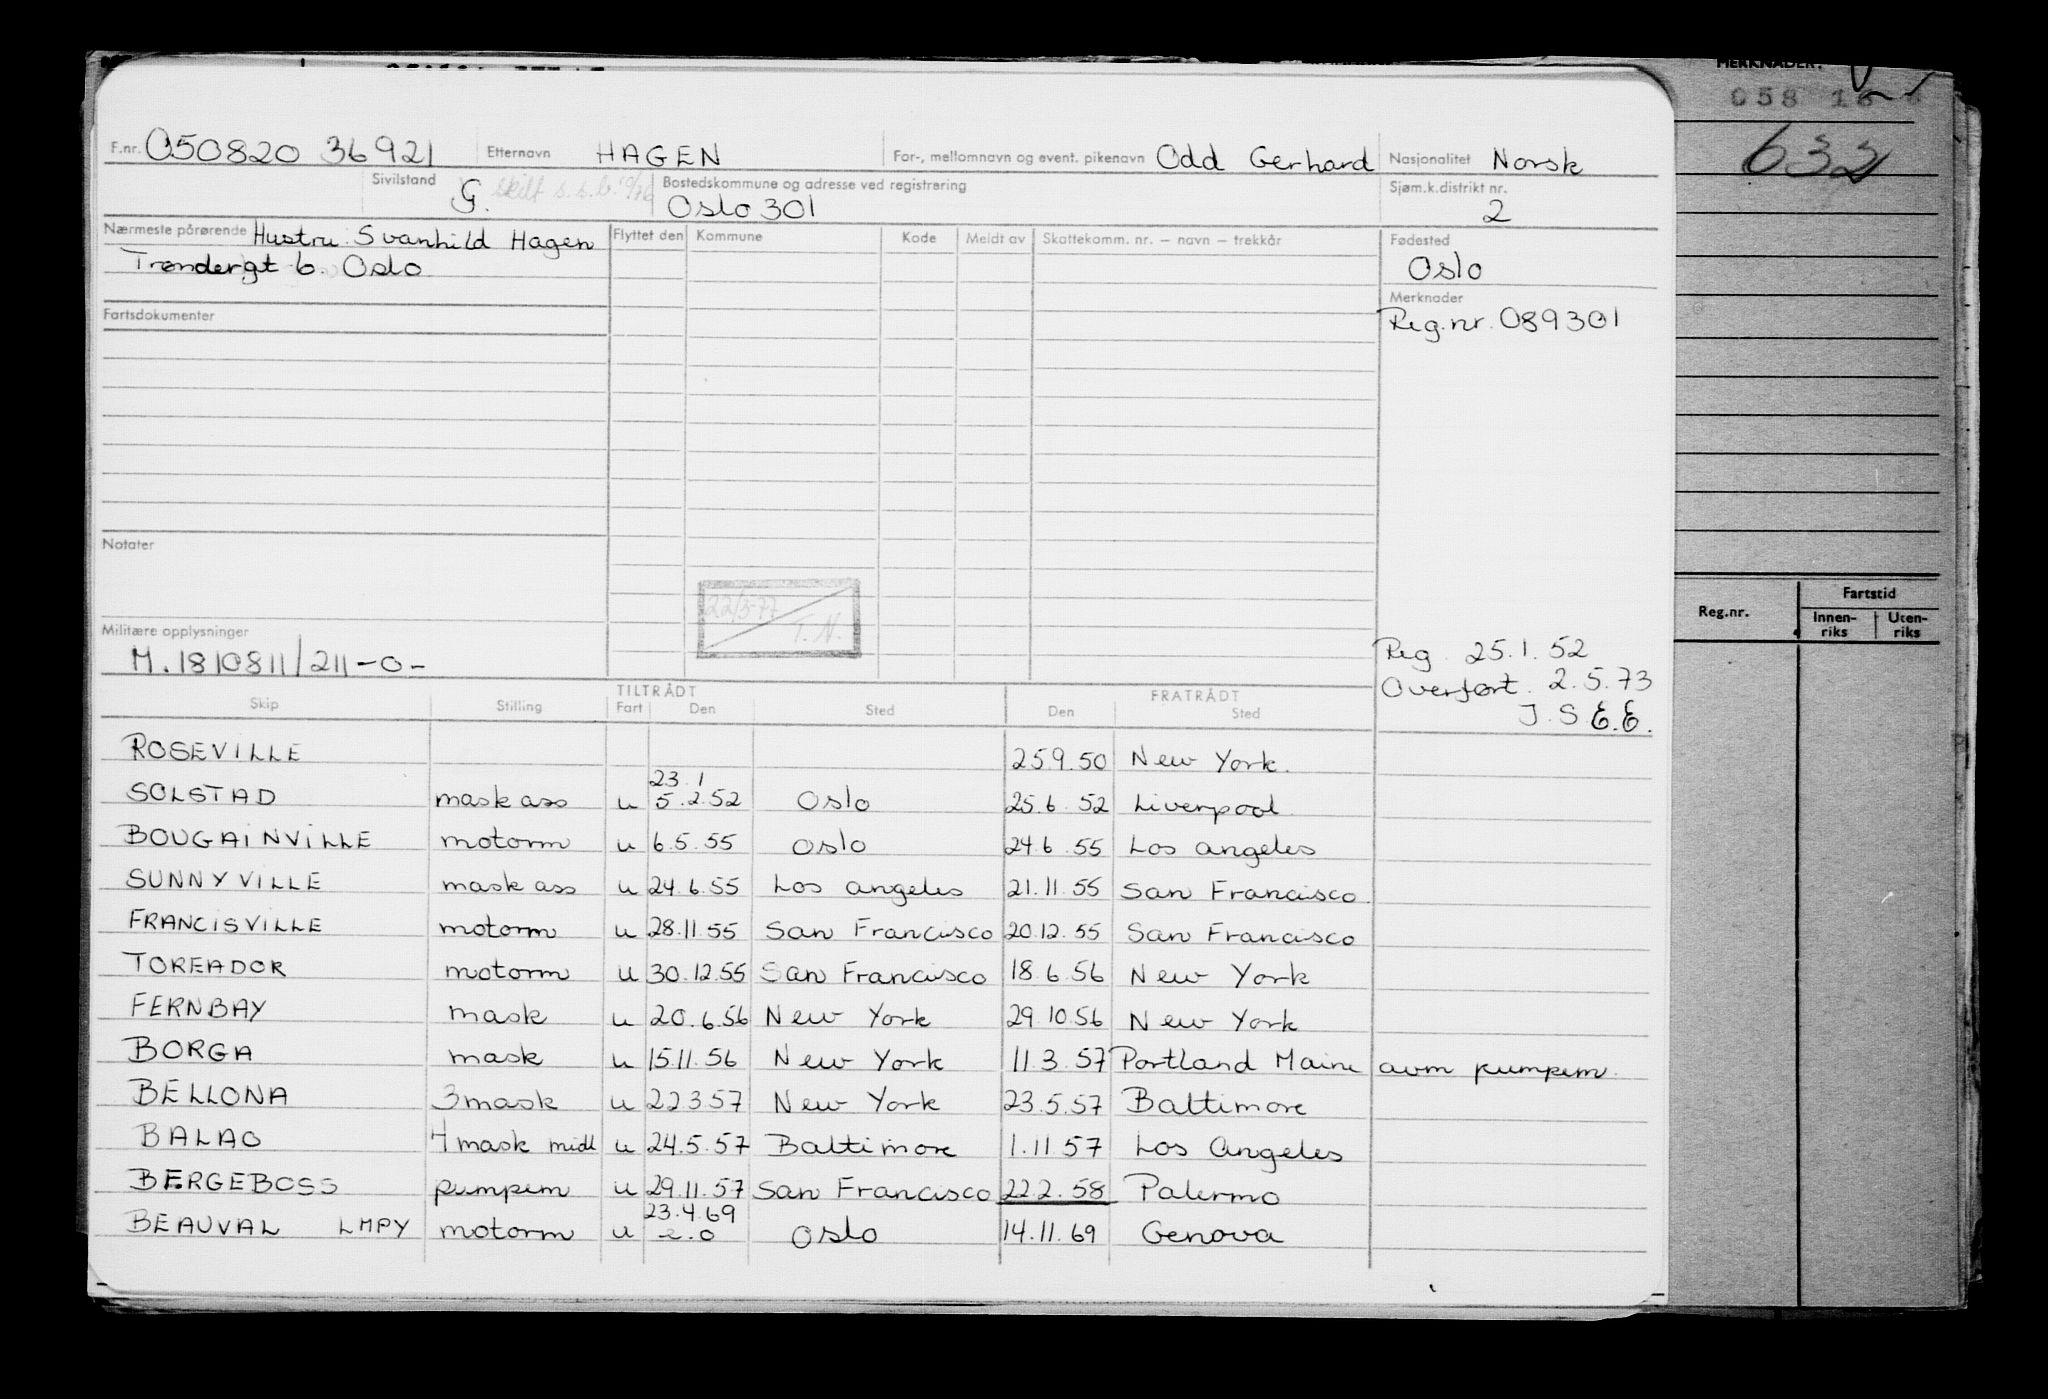 MERKNADER:
058 16
632
F.nr. 050820 36921 Etternavn HAGEN For-, mellomnavn og event. pikenavn Odd Gerhard Nasjonalitet Norsk
Sivilstand G. skilt s.s.b. Bostedskommune og adresse ved registrering Oslo 301 Sjøm.k.distrikt nr. 2
Nærmeste pårørende Hustru Svanhild Hagen Flyttet den Kommune Kode Meldt av Skattekomm. nr. – navn – trekkår Fødested
Trøndergt 6. Oslo Oslo
Fartsdokumenter Merknader
Reg.nr. 089301
Notater
22/3-77
T.N.
Reg.nr. Fartstid
Innenriks Utenriks
Militære opplysninger
M.1810811/211 -0-
Reg. 25.1.52
Overført. 2.5.73
J.S. E.E.
TILTRÅDT FRATRÅDT
Skip Stilling Fart Den Sted Den Sted
ROSEVILLE 25.9.50 New York.
23.1
SOLSTAD mask ass u 5.2.52 Oslo 25.6.52 Liverpool
BOUGAINVILLE motorm u 6.5.55 Oslo 24.6.55 Los Angeles
SUNNYVILLE mask ass u 24.6.55 Los Angeles 21.11.55 San Francisco.
FRANCISVILLE motorm u 28.11.55 San Francisco 20.12.55 San Francisco
TOREADOR motorm u 30.12.55 San Francisco 18.6.56 New York
FERNBAY mask u 20.6.56 New York 29.10.56 New York
BORGA mask u 15.11.56 New York 11.3.57 Portland Maine avm pumpem.
BELLONA 3 mask u 22.3.57 New York 23.5.57 Baltimore
BALAO 4 mask midl u 24.5.57 Baltimore 1.11.57 Los Angeles
BERGEBOSS pumpem u 29.11.57 San Francisco 22.2.58 Palermo
23.4.69
BEAUVAL LMPY motorm u e.o Oslo 14.11.69 Genova